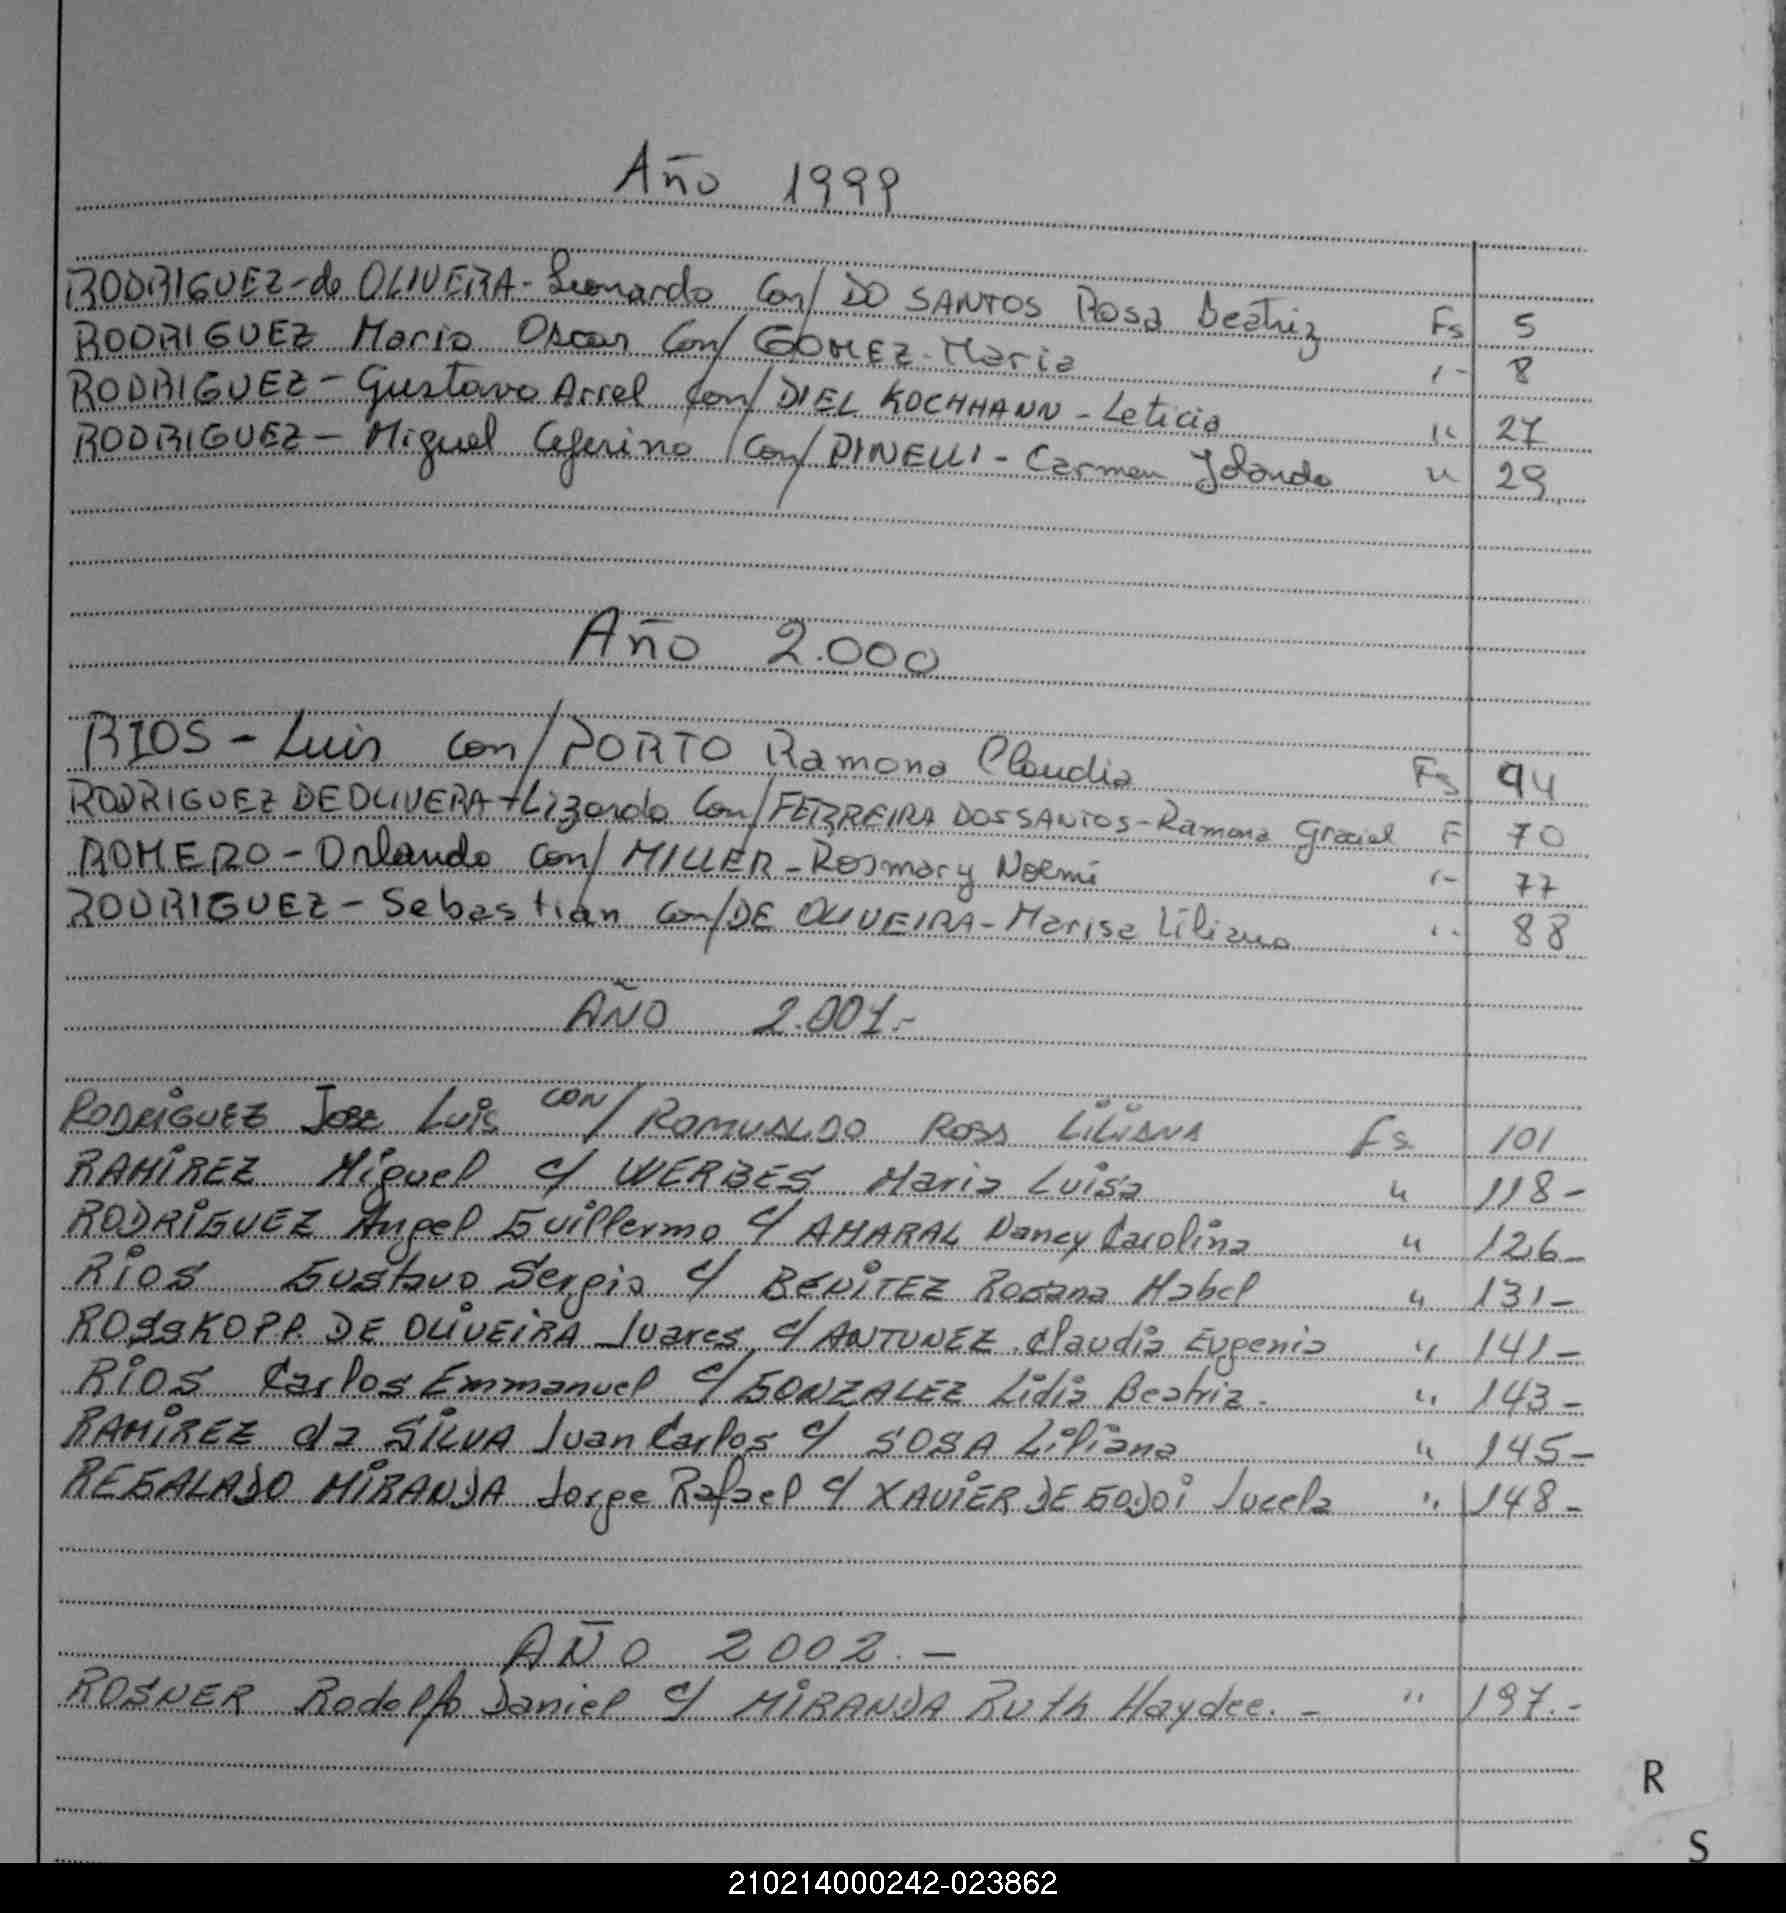 Año 1999
RODRIGUEZ-de OLIVERA-Leonardo Con/ DO SANTOS Rosa Beatriz Fs 5
RODRIGUEZ Mario Oscar Con/ GOMEZ-Maria 8
RODRIGUEZ-Gustavo Ariel Con/ DIEL KOCHHANN-Leticia " 27
RODRIGUEZ-Miguel Ceferino Con/ PINELLI-Carmen Yolanda " 29
Año 2.000
RIOS-Luis con/ PORTO Ramona Claudia Fs 44
RODRIGUEZ DE OLIVERA-Lizardo Con/ FERREIRA DOS SANTOS-Ramona Graciel F 70
ROMERO-Orlando con/ MILLER-Rosmary Noemi " 77
RODRIGUEZ-Sebastian con/ DE OLIVEIRA-Marisa Liliana " 88
AÑO 2.001.-
RODRIGUEZ Jose Luis CON/ ROMUALDO ROSA LILIANA Fs 101
RAMIREZ Miguel c/ WERBES Maria Luisa " 118-
RODRIGUEZ Angel Guillermo c/ AMARAL Nancy Carolina " 126-
RIOS Gustavo Sergio c/ BENITEZ Rosana Mabel " 131-
ROSSKOPP DE OLIVEIRA Juares c/ ANTUNEZ Claudia Eugenia " 141-
RIOS Carlos Emmanuel c/ GONZALEZ Lidia Beatriz. " 143-
RAMIREZ da SILVA Juan Carlos c/ SOSA Liliana " 145-
REGALADO MIRANDA Jorge Rafael c/ XAVIER DE GODOI Jucela " 148-
AÑO 2002.-
ROSNER Rodolfo Daniel c/ MIRANDA Ruth Haydee.- " 197.-
R
S
210214000242-023862